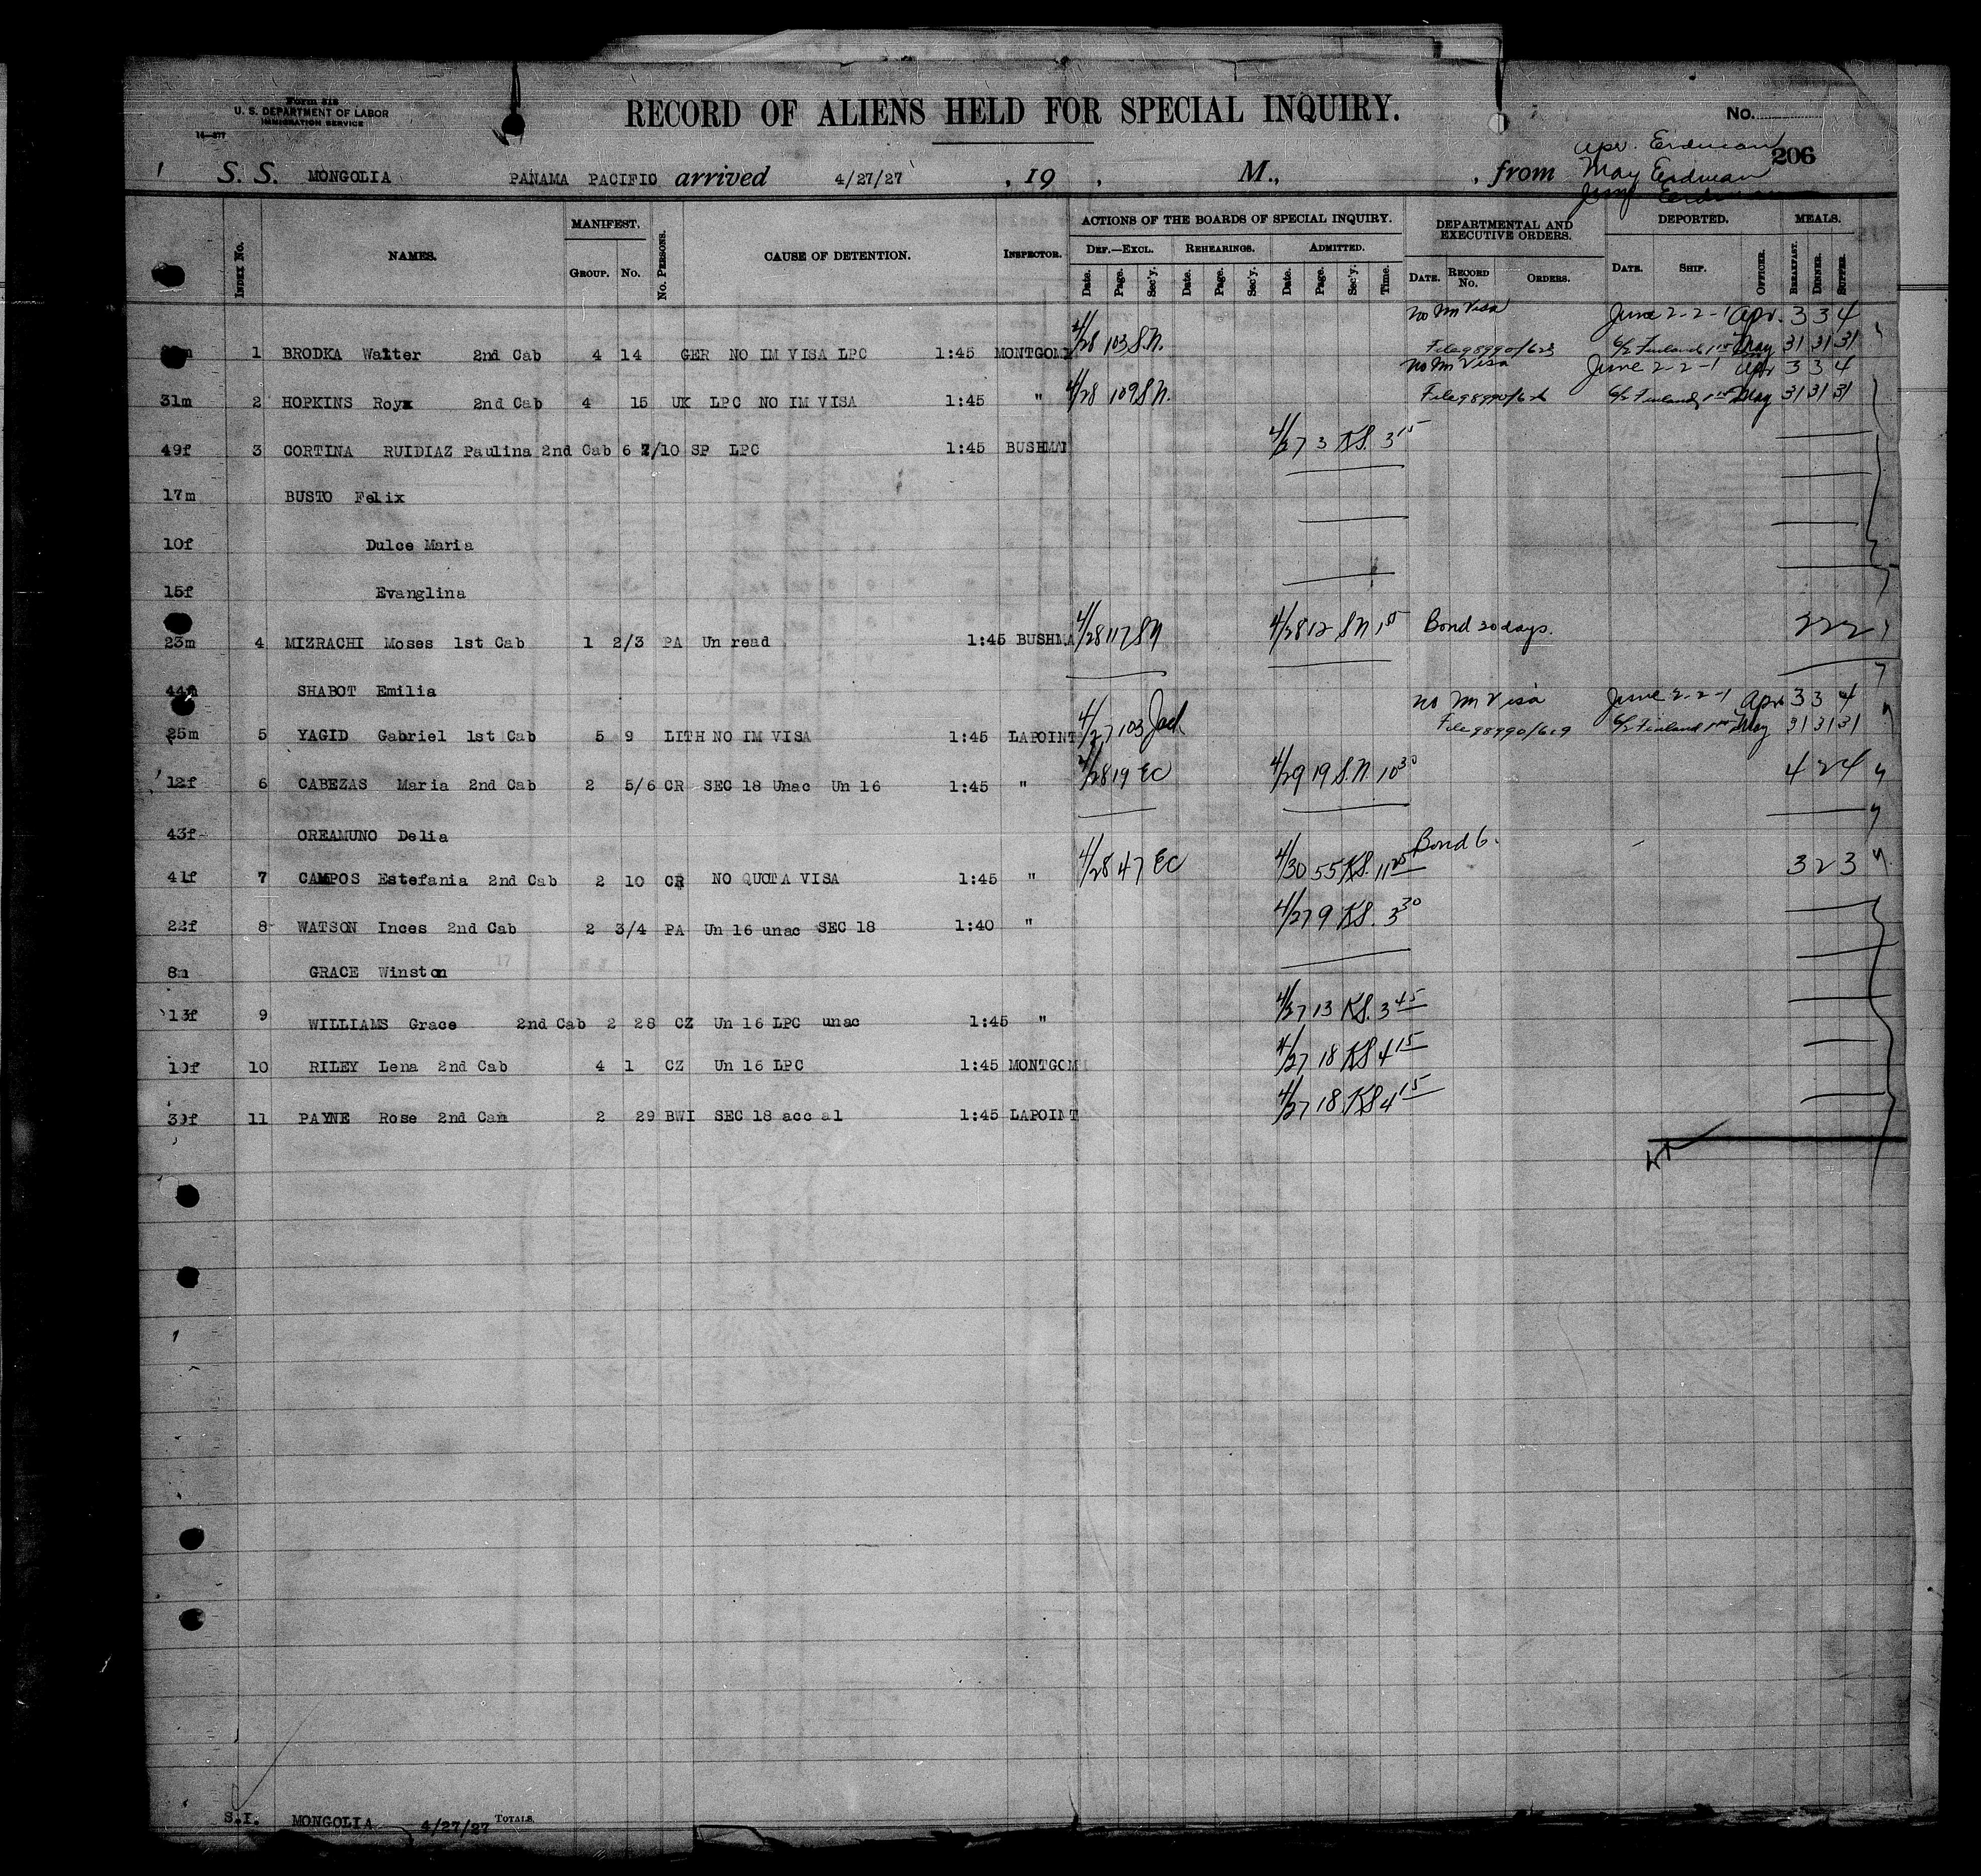 Form 818
U. S. DEPARTMENT OF LABOR
IMMIGRATION SERVICE
14—877
RECORD OF ALIENS HELD FOR SPECIAL INQUIRY.
No.
Apr. Erdman
206
S. S. MONGOLIA PANAMA PACIFIC arrived 4/27/27 , 19 , M., , from May Erdman
June Erdman
Index No. NAMES. MANIFEST. Group. No. No. Persons. CAUSE OF DETENTION. Inspector. ACTIONS OF THE BOARDS OF SPECIAL INQUIRY. DEPARTMENTAL AND EXECUTIVE ORDERS. DEPORTED. MEALS.
Def.—Excl. Rehearings. Admitted.
Date. Page. Sec'y. Date. Page. Sec'y. Date. Page. Sec'y. Time. Date. Record No. Orders. Date. Ship. Officer. Breakfast. Dinner. Supper.
No Im Visa June 2-2-1 Apr. 3 3 4
1 BRODKA Walter 2nd Cab 4 14 GER NO IM VISA LPC 1:45 MONTGOM 4/28 103 S.N. File 98990/623 Finland May 31 31 31
No Im Visa June 2-2-1 Apr 3 3 4
31m 2 HOPKINS Royx 2nd Cab 4 15 UK LPC NO IM VISA 1:45 " 4/28 109 S.N. File 98990/626 Finland May 31 31 31
49f 3 CORTINA RUIDIAZ Paulina 2nd Cab 6 7/10 SP LPC 1:45 BUSHMAN 4/27 3 KS. 3 15
17m BUSTO Felix
10f Dulce Maria
15f Evanglina
23m 4 MIZRACHI Moses 1st Cab 1 2/3 PA Un read 1:45 BUSHMA 4/28 117 SN 4/28 12 SN Bond 20 days. 2 2 2
44f SHABOT Emilia
No Im Visa June 2-2-1 Apr 3 3 4
25m 5 YAGID Gabriel 1st Cab 5 9 LITH NO IM VISA 1:45 LAPOINT 4/27 103 File 98990/619 Finland May 31 31 31
12f 6 CABEZAS Maria 2nd Cab 2 5/6 CR SEC 18 Unac Un 16 1:45 " 4/28 19 EC 4/29 19 S.N. 10 30 4 2 4
43f OREAMUNO Delia
Bond 6.
41f 7 CAMPOS Estefania 2nd Cab 2 10 CR NO QUOTA VISA 1:45 " 4/28 47 EC 4/30 55 KS. 11 25 3 2 3
22f 8 WATSON Inces 2nd Cab 2 3/4 PA Un 16 unac SEC 18 1:40 " 4/27 9 KS. 3 30
8m GRACE Winston
13f 9 WILLIAMS Grace 2nd Cab 2 28 CZ Un 16 LPC unac 1:45 " 4/27 13 KS. 3 45
10f 10 RILEY Lena 2nd Cab 4 1 CZ Un 16 LPC 1:45 MONTGOM 4/27 18 KS 4 15
39f 11 PAYNE Rose 2nd Cam 2 29 BWI SEC 18 acc al 1:45 LAPOINT 4/27 18. KS 4 15
S.I. MONGOLIA 4/27/27 Totals